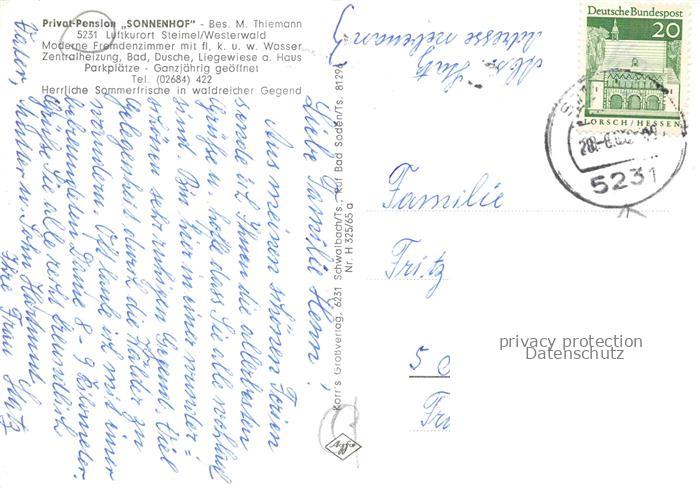 Privat-Pension „SONNENHOF" - Bes. M. Thiemann
5231 Luftkurort Steimel/Westerwald
Moderne Fremdenzimmer mit fl, k. u. w. Wasser
Zentralheizung, Bad, Dusche, Liegewiese a. Haus
Parkplätze - Ganzjährig geöffnet
Tel. (02684) 422
Herrliche Sommerfrische in waldreicher Gegend
Liebe Familie Henn!
Aus meinen schönen Ferien
sende ich Ihnen die allerbesten
Grüße u. hoffe dass Sie alle wohlauf
sind. Bin hier in einer wunder=
schönen sehr ruhigen Gegend. Viel
Gelegenheit durch die Wälder zu
wandern. Oft laufe ich mit einer
befreundeten Dame 8-9 Kilometer.
Grüße Sie alle recht freundlich
Vater, Mutter u. Sohn Hartmut
Ihre Frau
Karr's Großverlag, 6231 Schwalbach/Ts., Ruf Bad Soden/Ts. 81296
Nr. H 325/65 a
Adresse nebenan
Deutsche Bundespost
20
LORSCH/HESSEN
5231
Familie
Fritz
privacy protection
Datenschutz
5